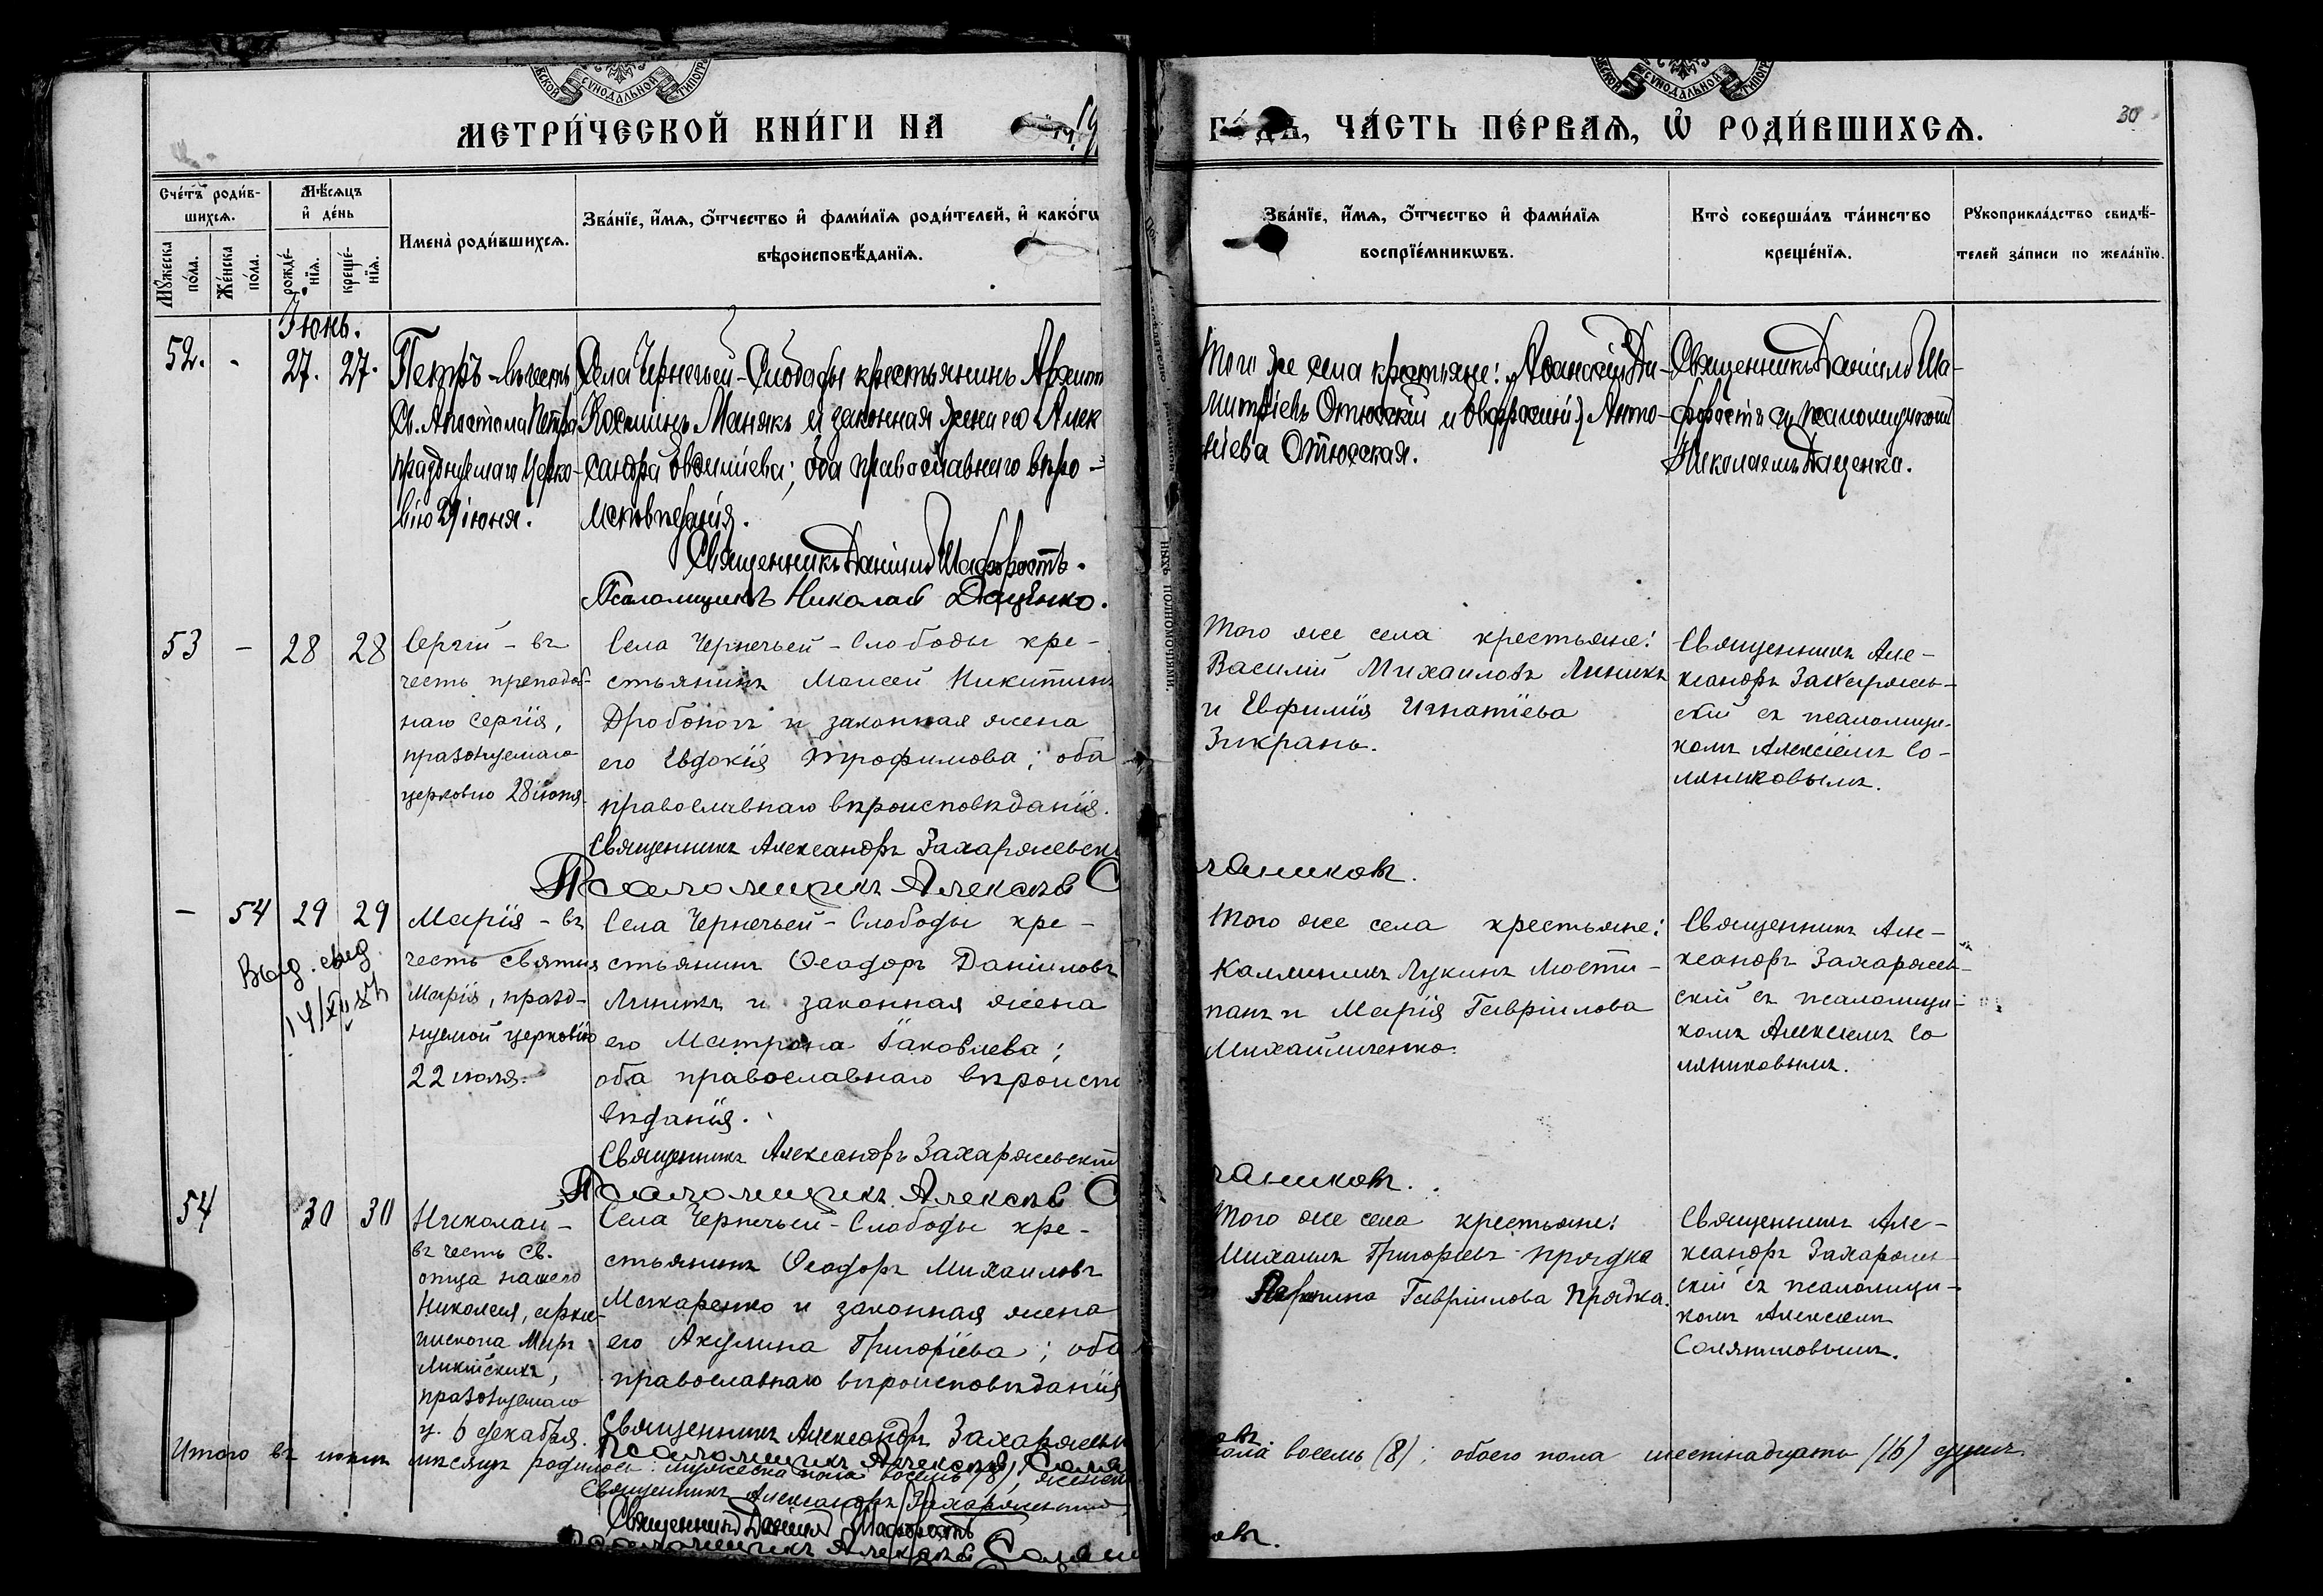 МЕТРИ́ЧЕСКОЙ КНИ́ГИ НА
ГО́ДЪ, ЧА́СТЬ ПЕ́РВАѦ, Ѡ҆ РОДИ́ВШИХСѦ.
30
Сче́тъ роди́в-
шихсѧ.
Мѣ́сѧцъ
и҆ де́нь
Мꙋ́жеска
по́ла.
Же́нска
по́ла.
рожде́-
нїѧ.
креще́-
нїѧ.
Имена̀ роди́вшихсѧ.
Зва́нїе, и҆́мѧ, ѻ҆́тчество и҆ фами́лїѧ роди́телей, и҆ како́гѡ
вѣроисповѣ́данїѧ.
Зва́нїе, и҆́мѧ, ѻ҆́тчество и҆ фами́лїѧ
воспрїе́мникѡвъ.
Кто̀ соверша́лъ та́инство
креще́нїѧ.
Рꙋкоприкла́дство свидѣ́-
телей за́писи по жела́нїю.
Іюнь.
52. - 27. 27.
Петръ - въ честь
Св. Апостола Петра
празднуемаго Церко-
вію 29 іюня.
Села Чернечьей-Слободы крестьянинъ
Косминъ Манякъ и законная жена его Алек
сандра; оба православнаго вѣро-
исповѣданія.
Священникъ Даніилъ Шафоростъ.
Псаломщикъ Николай Даценко.
Того же села крестьяне: Аѳанасій Ди-
митріевъ и Анто-
ніева
Священникъ Даніилъ Ша-
форостъ съ псаломщикомъ
Николаемъ Даценко.
53 - 28 28
Сергій - въ
честь преподоб-
наго Сергія,
празднуемаго
церковью 28 іюня.
Села Чернечьей-Слободы кре-
стьянинъ Моисей Никитинъ
Дробоногъ и законная жена
его Евдокія Трофимова; оба
православнаго вѣроисповѣданія.
Священникъ Александръ Захаржевск
Псаломщикъ Алексѣй С
Того же села крестьяне:
Василій Михаиловъ Линикъ
и Евфимія Игнатіева
Зикрань.
Священникъ Але-
ксандръ Захаржев-
скій съ псаломщи-
комъ Алексіемъ Со-
ляниковымъ.
ляниковъ.
- 54 29 29
Выд. свид.
Марія - въ
честь святыя
Маріи, празд-
нуемой церковію
22 июля.
Села Чернечьей-Слободы кре-
стьянинъ Ѳеодоръ Даніиловъ
Линикъ и законная жена
его Матрона Іаковлева;
оба православнаго вѣроиспо
вѣданія.
Священникъ Александръ Захаржевскій
Псаломщикъ Алексѣй С
Того же села крестьяне:
Каллиникъ Лукинъ Мости-
панъ и Марія Гавріилова
Михайличенко.
Священникъ Але-
ксандръ Захаржев-
скій съ псаломщи-
комъ Алексіемъ Со
ляниковымъ.
ляниковъ.
54 30 30
Николай -
въ честь св.
отца нашего
Николая, архіе-
пископа Мѵръ
Ликійскихъ,
празднуемаго
ц. 6 декабря.
Села Чернечьей-Слободы кре-
стьянинъ Ѳеодоръ Михаиловъ
Макаренко и законная жена
его Акулина Григоріева; оба
православнаго вѣроисповѣданія
Священникъ Александръ Захаржевск
Псаломщикъ Алексѣй Соля
Того же села крестьяне:
Михаилъ Григоріевъ Прядка
Гавріилова Прядка.
Священникъ Але-
ксандръ Захаржев-
скій съ псаломщи-
комъ Алексіемъ
Соляниковымъ.
Итого въ іюнѣ мѣсяцѣ родилось: мужеска пола восемь (8), женск
пола восемь (8); обоего пола шестнадцать (16) душъ.
Священникъ Александръ Захаржевскій
Священникъ Даніилъ Шафоростъ
Псаломщикъ Алексѣй Солян
овъ.